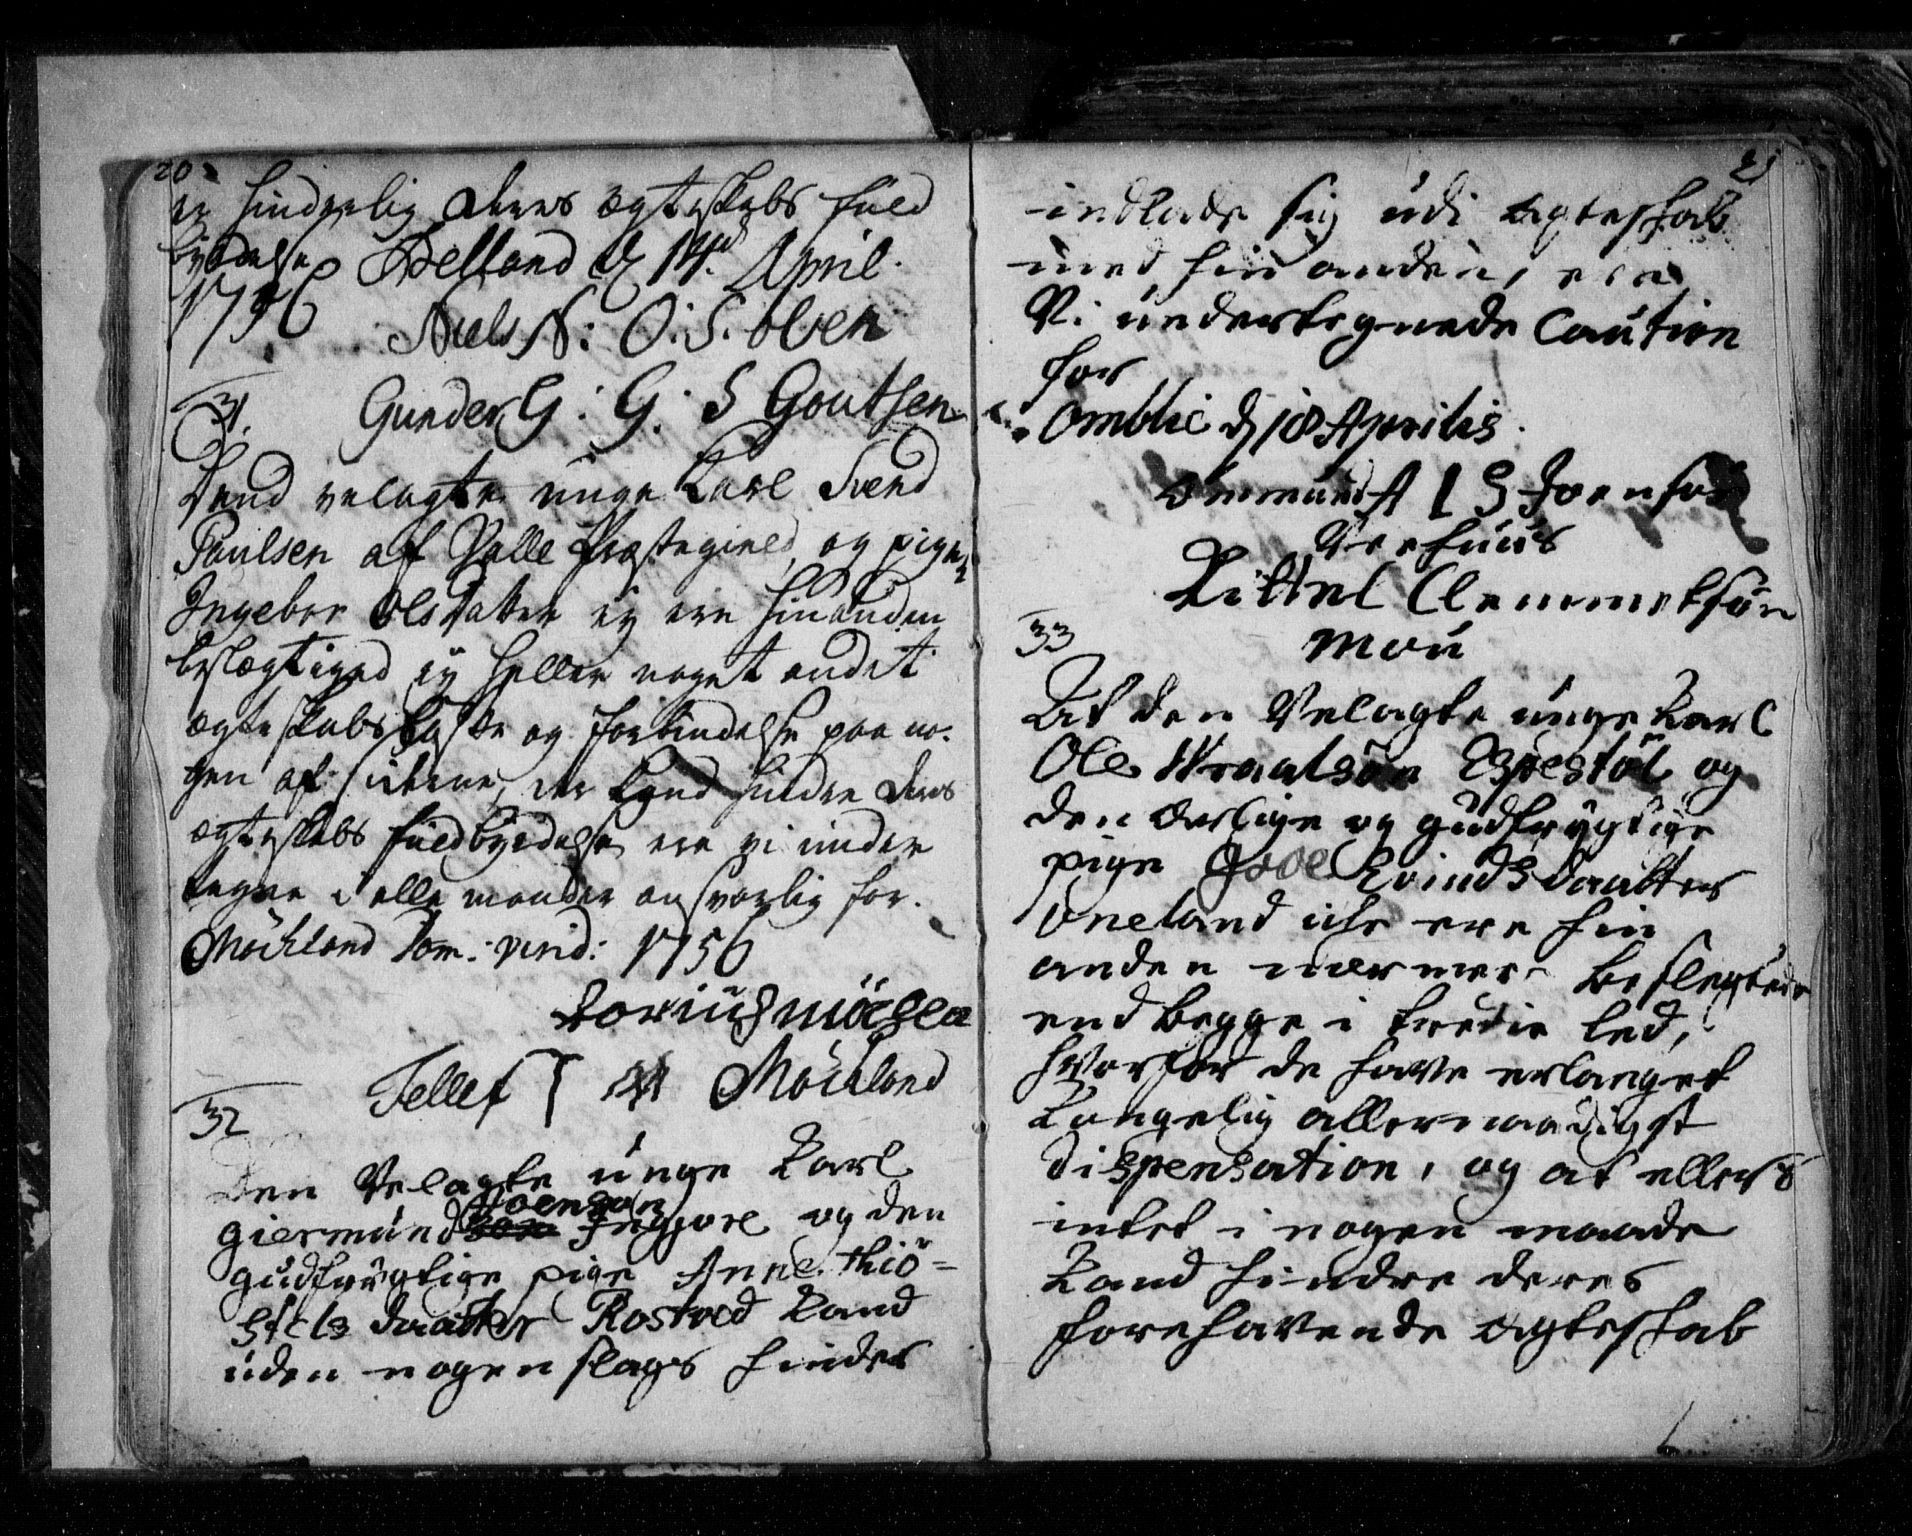 20
er hinderlig deres ægteskabs fuld
byrdelse Helland d 14d April.
1756
Niels N: O: S. olsen
31.
Gunder G: G: S Goutsen
Dend velagte unge Karl Svend
Paulsen af Valle Præstegield og pigen
Ingebor Olsdatter ey ere hinanden
beslægtiged ey heller noget andet
ægteskabs løfte og forbindelse paa no-
gen af siderne, der kand hindre deres
ægteskabs fuldbyrdelse ere vi under
tegne i alle maader ansvarlig for.
Möchland Dom: 1756
Tellef T Möchland
32
Den Velagte unge Karl
Joensøn
giermund Ingjore og den
gudfrygtige pige Anne Thiö-
stels daatter Rostved kand
uden nogen slags hinder
21
indlade sig udi ægteskab
med hin anden, ere
Vi undertegnede Caution
for
Omblie d 18 Aprilis.
Ommund A I S Joensøn
Veehuus
Kittel Clemmetsøn
Mou
33
At den Velagte unge Karl
Ole Wraalsøn Espestøl og
den ærlige og gudfrygtige
pige Evindsdaatter
Uneland icke ere hin
anden nærmere beslegtede
end begge i tredie led,
hvorfor de have erlanget
Kongelig allernaadigst
dispensation, og at ellers
intet i nogen maade
kand hindre deres
forehavende ægteskab